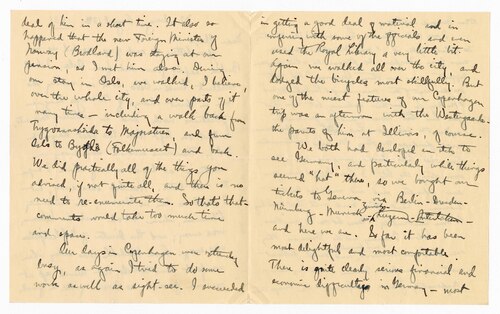 deal of him in a short time. It also so
happened that the new Foreign Minister of
Norway (Birkland) was staying at our
pension, so I met him also. During
our stay in Oslo, we walked, I believe,
over the whole city, and even parts of it
many times – including a walk back from
to Majorstuen and from
Oslo to Bygdø (Folkemuseet) and back.
We did practically all of the things you
advised, if not quite all, and there is no
need to re-enumerate them. So that
comments would take too much time
and space.
Our days in Copenhagen were
busy, as again I tried to do some
work as well as sight-see. I succeeded
in getting a good deal of material and in
inquiring with some of the officials and even
used the Royal Library a very little bit.
Again we walked all over the city, and
dodged the bicycles most skillfully. But
one of the nicest features of our Copenhagen
trip was an afternoon with the
the parents of him at Illinois, of course.
We both had developed an itch to
see Germany, and particularly while things
seemed "hot" there, so we bought our
tickets to Geneva via Berlin – Dresden –
Nürnberg – Munich –
and here we are. So far it has been
most delightful and most comfortable.
There is quite clearly serious financial and
economic difficulty in Germany – most